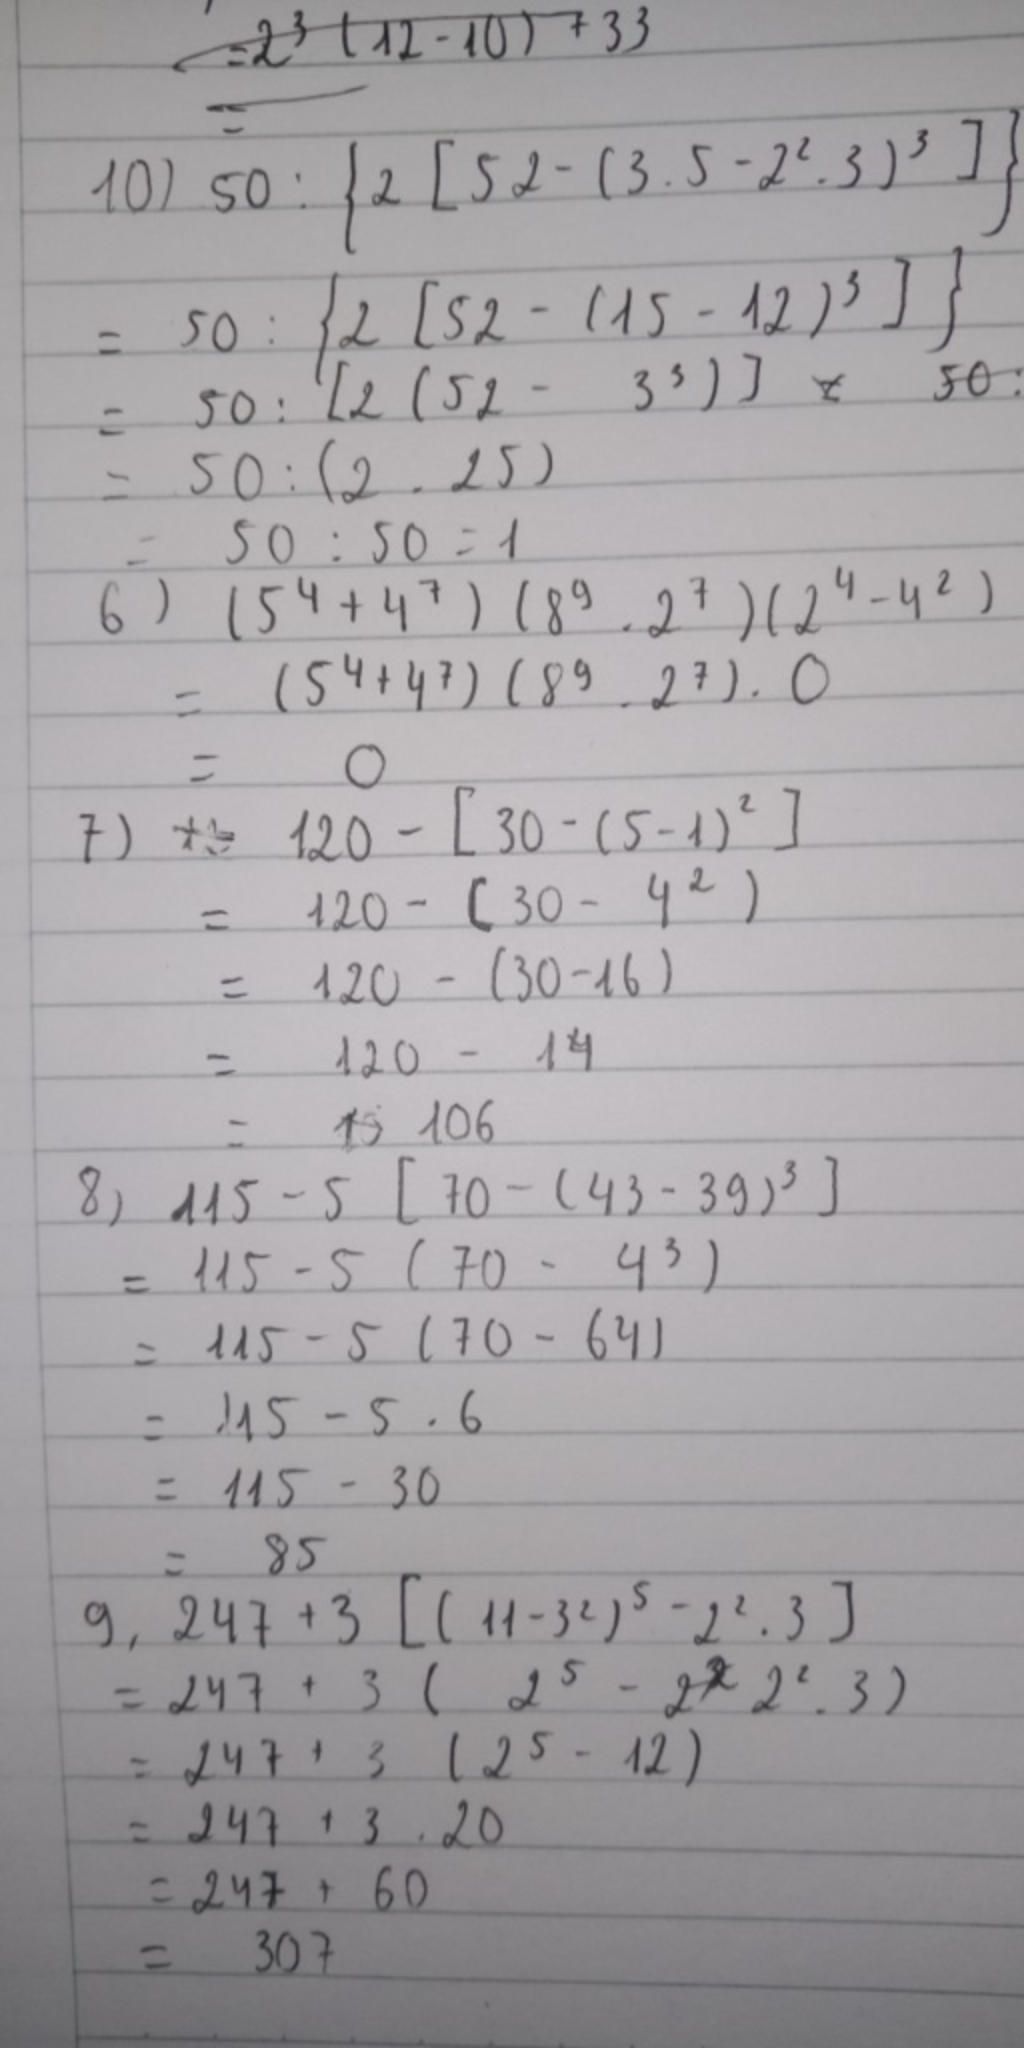 =2³ (12-10) + 33
=
10) 50 : {2 [52 - (3.5 - 2².3)³]}
= 50 : {2 [52 - (15 - 12)³]}
= 50 : [2 (52 - 3³)] 50:
= 50 : (2 . 25)
= 50 : 50 = 1
6) (5⁴ + 4⁷) (8⁹ . 2⁷) (2⁴ - 4²)
= (5⁴ + 4⁷) (8⁹ . 2⁷) . 0
= 0
7) 120 - [30 - (5-1)²]
= 120 - (30 - 4²)
= 120 - (30-16)
= 120 - 14
= 106
8) 115 - 5 [70 - (43 - 39)³]
= 115 - 5 (70 - 4³)
= 115 - 5 (70 - 64)
= 115 - 5 . 6
= 115 - 30
= 85
9, 247 + 3 [(11 - 3²)⁵ - 2² . 3]
= 247 + 3 (2⁵ - 2² . 3)
= 247 + 3 (2⁵ - 12)
= 247 + 3 . 20
= 247 + 60
= 307